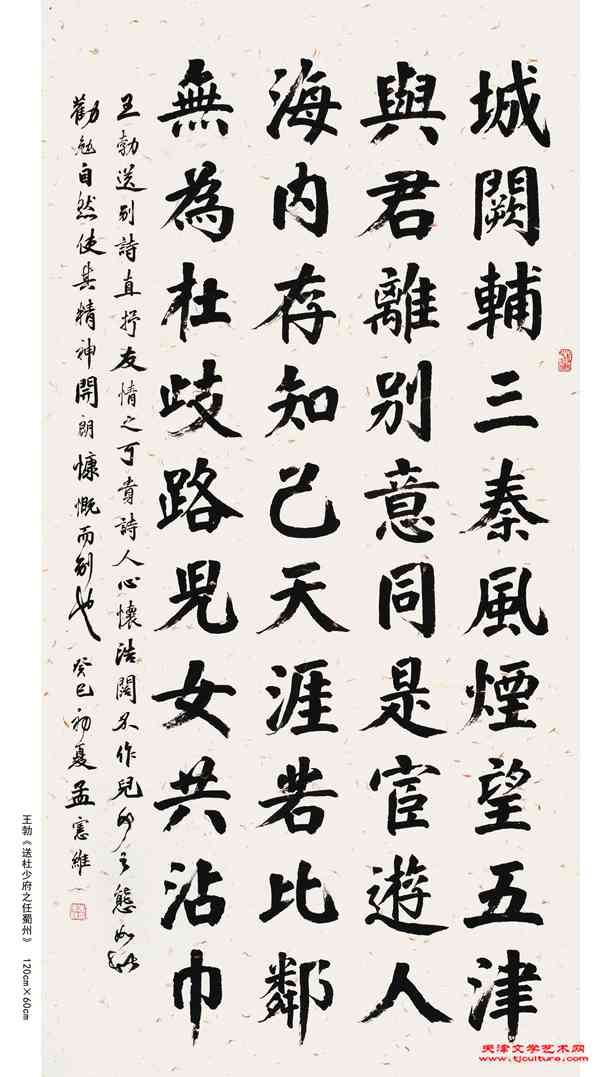 城闕輔三秦風煙望五津
與君離别意同是宦遊人
海内存知己天涯若比鄰
無為杜歧路兒女共沾巾
王勃送别詩直抒友情之可貴詩人心懷浩闊不作兒女之態如此
勸勉自然使其精神開朗慷慨而别也 癸巳初夏孟憲維
王勃《送杜少府之任蜀州》 120cm×60cm
天津文学艺术网
www.tjculture.com